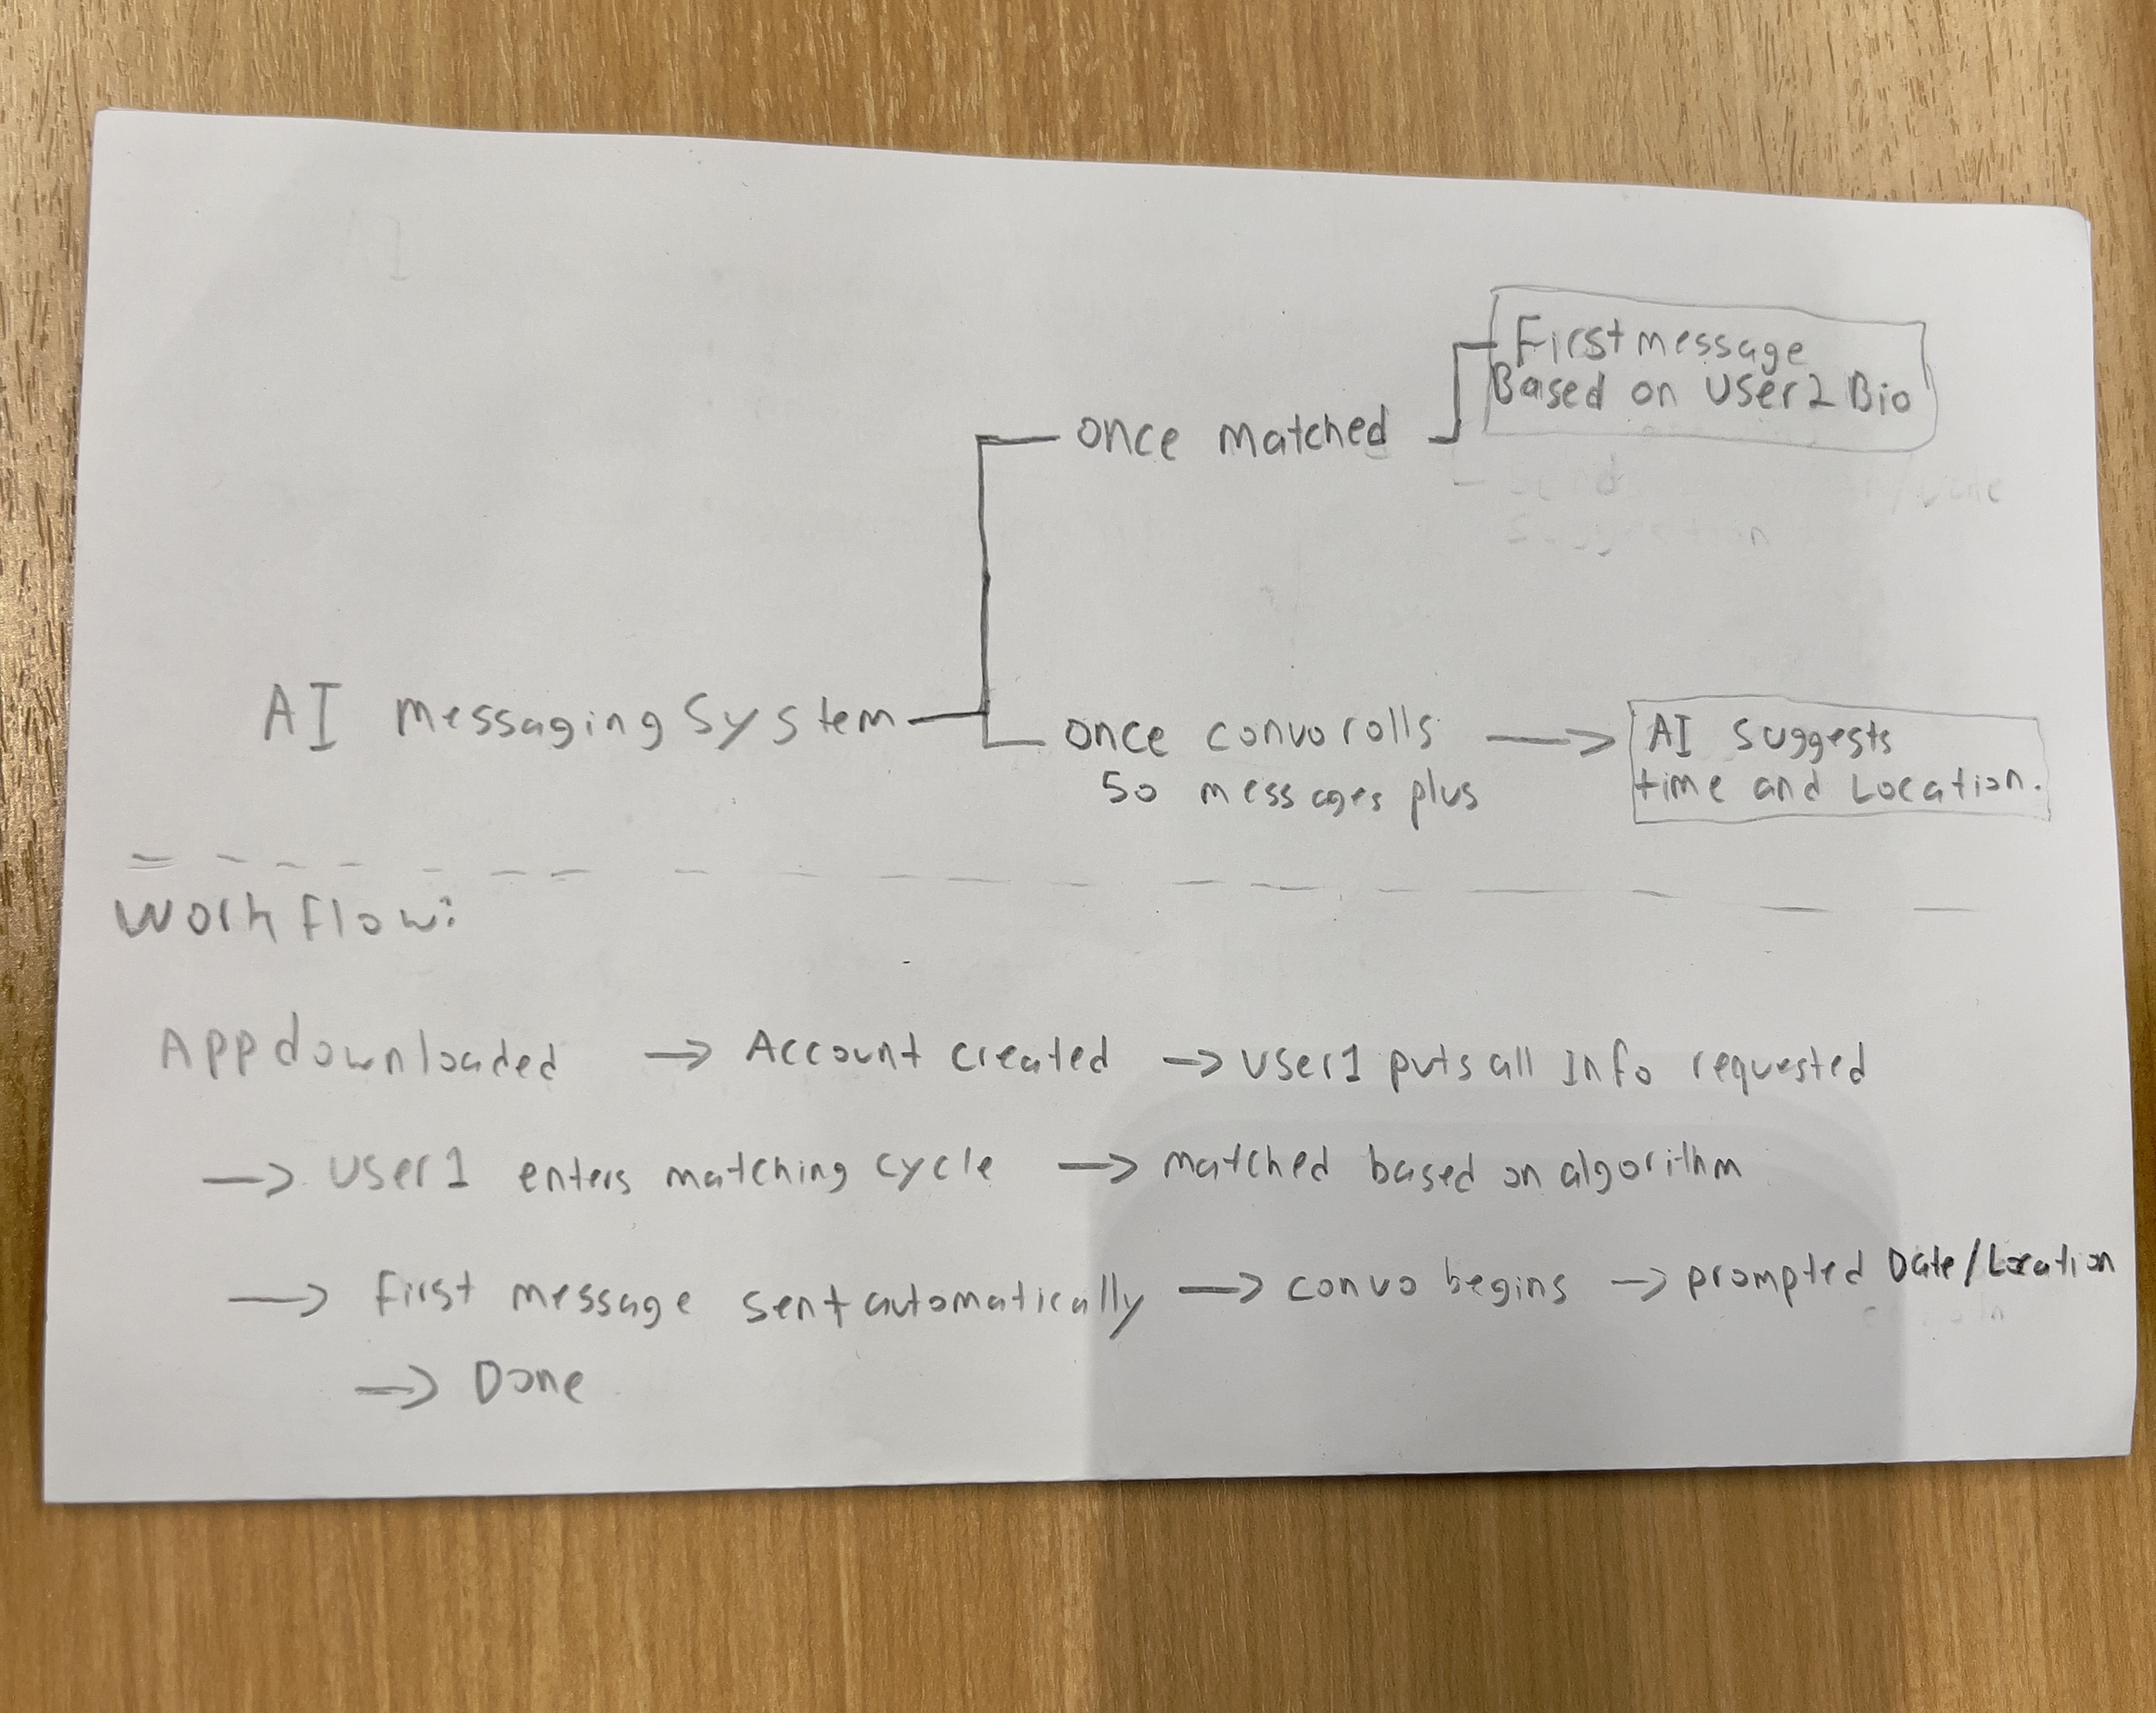 First message
Based on User2 Bio
once matched
AI messaging System
once convo rolls
50 messages plus
AI suggests
time and Location.
Workflow:
App downloaded → Account created → User1 puts all Info requested
→ User1 enters matching cycle → matched based on algorithm
→ first message sent automatically → convo begins → prompted Date/Location
→ Done